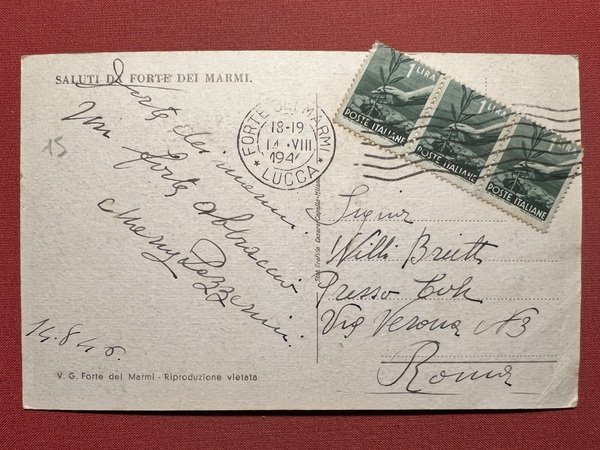 SALUTI DA FORTE DEI MARMI.
15
Forte dei marmi.
Un forte abbraccio
14.8.46.
V. G. Forte dei Marmi - Riproduzione vietata
FORTE DEI MARMI
18-19
14 VIII
194
LUCCA
1 LIRA
POSTE ITALIANE
1 LIRA
POSTE ITALIANE
1 LIRA
POSTE ITALIANE
Signor
Willi
Presso
Via Verona N3
Roma